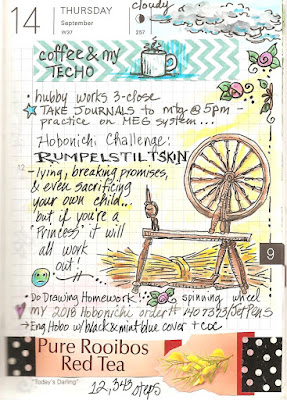 cloudy
14 THURSDAY
September
W37
257
coffee & my
TECHO
• hubby works 3-close
TAKE JOURNALS to mtg @ 5pm -
practice on MEG system...
Hobonichi Challenge:
RUMPELSTILTSKIN
12
- lying, breaking promises,
& even sacrificing
your own child...
but if you're a
"Princess" it will
all work
out!
9
• Do Drawing Homework!
spinning wheel
my 2018 Hobonichi order # 1407323/Jet Pens
→ Eng. Hobo w/black & mint blue cover + coc
Pure Rooibos
Red Tea
"Today's Darling"
12,343 steps